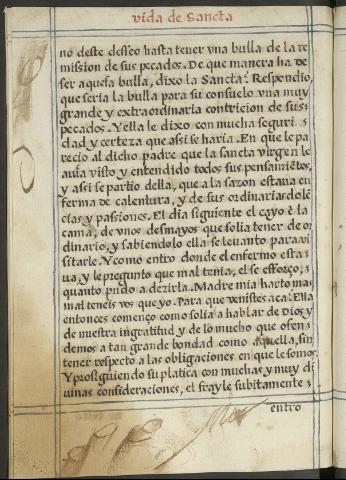 vida de Sancta
no deste desseo hasta tener vna bulla de la re
mission de sus pecados. De que manera ha de
ser aquesa bulla, dixo la Sancta? Respondio,
que seria la bulla para su consuelo vna muy
grande y extraordinaria contricion de sus
pecados. Y ella le dixo con mucha seguri
dad y certeza que assi se haria. En que le pa
recio al dicho padre que la sancta virgen le
auia visto y entendido todos sus pensamiētos,
y assi se partio della, que a la sazon estaua en
ferma de calentura, y de sus ordinarias dolē
cias y passiones. El dia siguiente el cayo ē la
cama, de vnos desmayos que solia tener de or
dinario, y sabiendolo ella se leuanto para vi
sitarle. Y como entro donde el enfermo esta
ua, y le pregunto que mal tenia, el se efforço,
quanto pudo a dezirla. Madre mia harto mas
mal teneis vos que yo. Para que venistes aca? Ella
entonces començo como solia a hablar de Dios, y
de nuestra ingratitud, y de lo mucho que ofen
demos a tan grande bondad como aquella, sin
tener respecto a las obligaciones en que le somos.
Y prosiguiendo su platica con muchas y muy di
uinas consideraciones, el frayle subitamente
entro